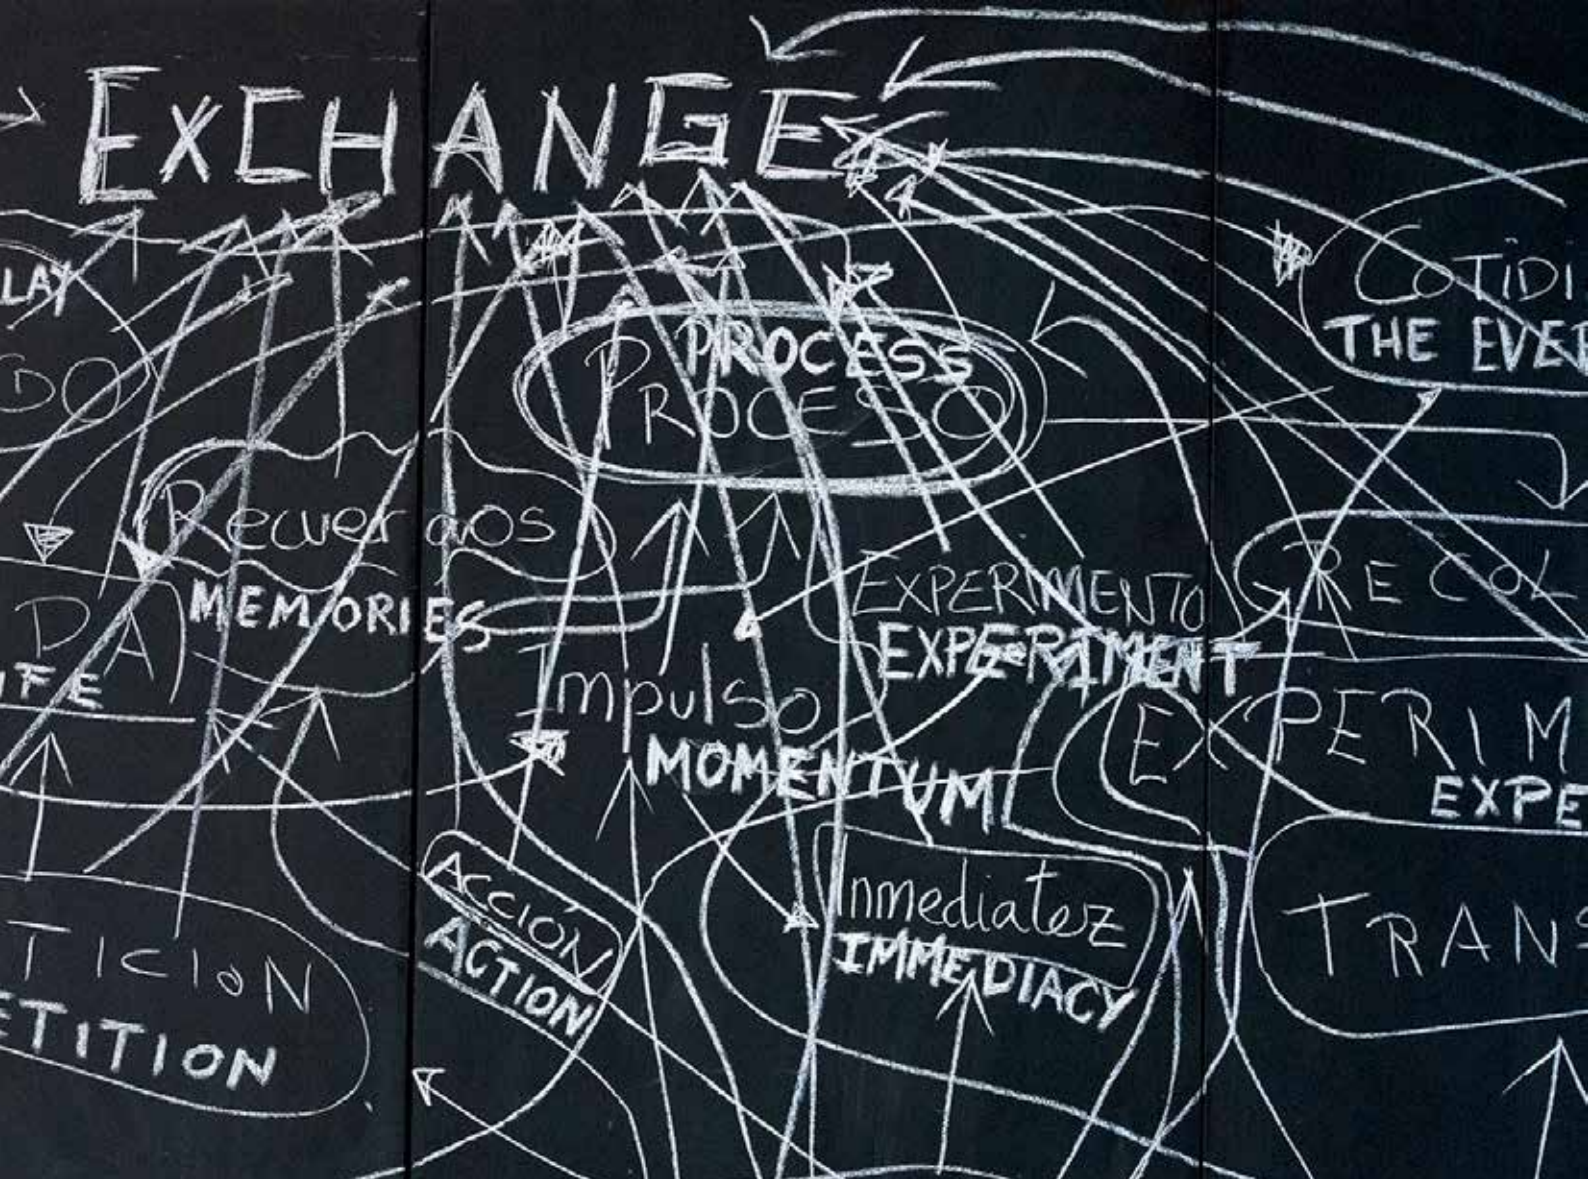 EXCHANGE
LAY
DO
COTIDI
THE EVER
PROCESS
PROCESO
Recuerdos
MEMORIES
DA
IFE
EXPERIMENTO
EXPERIMENT
RECOL
Impulso
MOMENTUM
EXPERIM
EXPE
ACCIÓN
ACTION
Inmediatez
IMMEDIACY
TRANS
TICION
ETITION